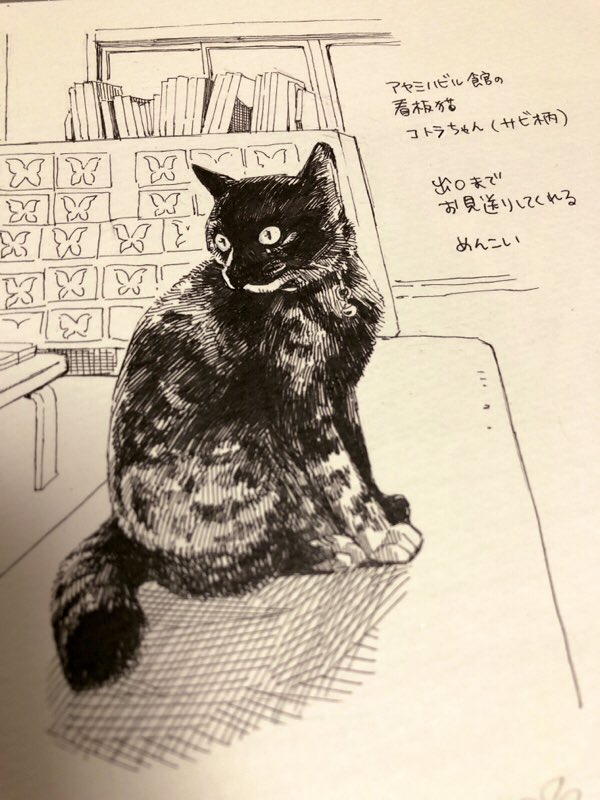 アヤミハビル館の
看板猫
コトラちゃん(サビ柄)
出口まで
お見送りしてくれる
めんこい